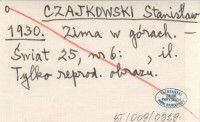 CZAJKOWSKI Stanisław
1930. Zima w górach. —
Świat 25, nr 6: , il.
Tylko reprod. obrazu.